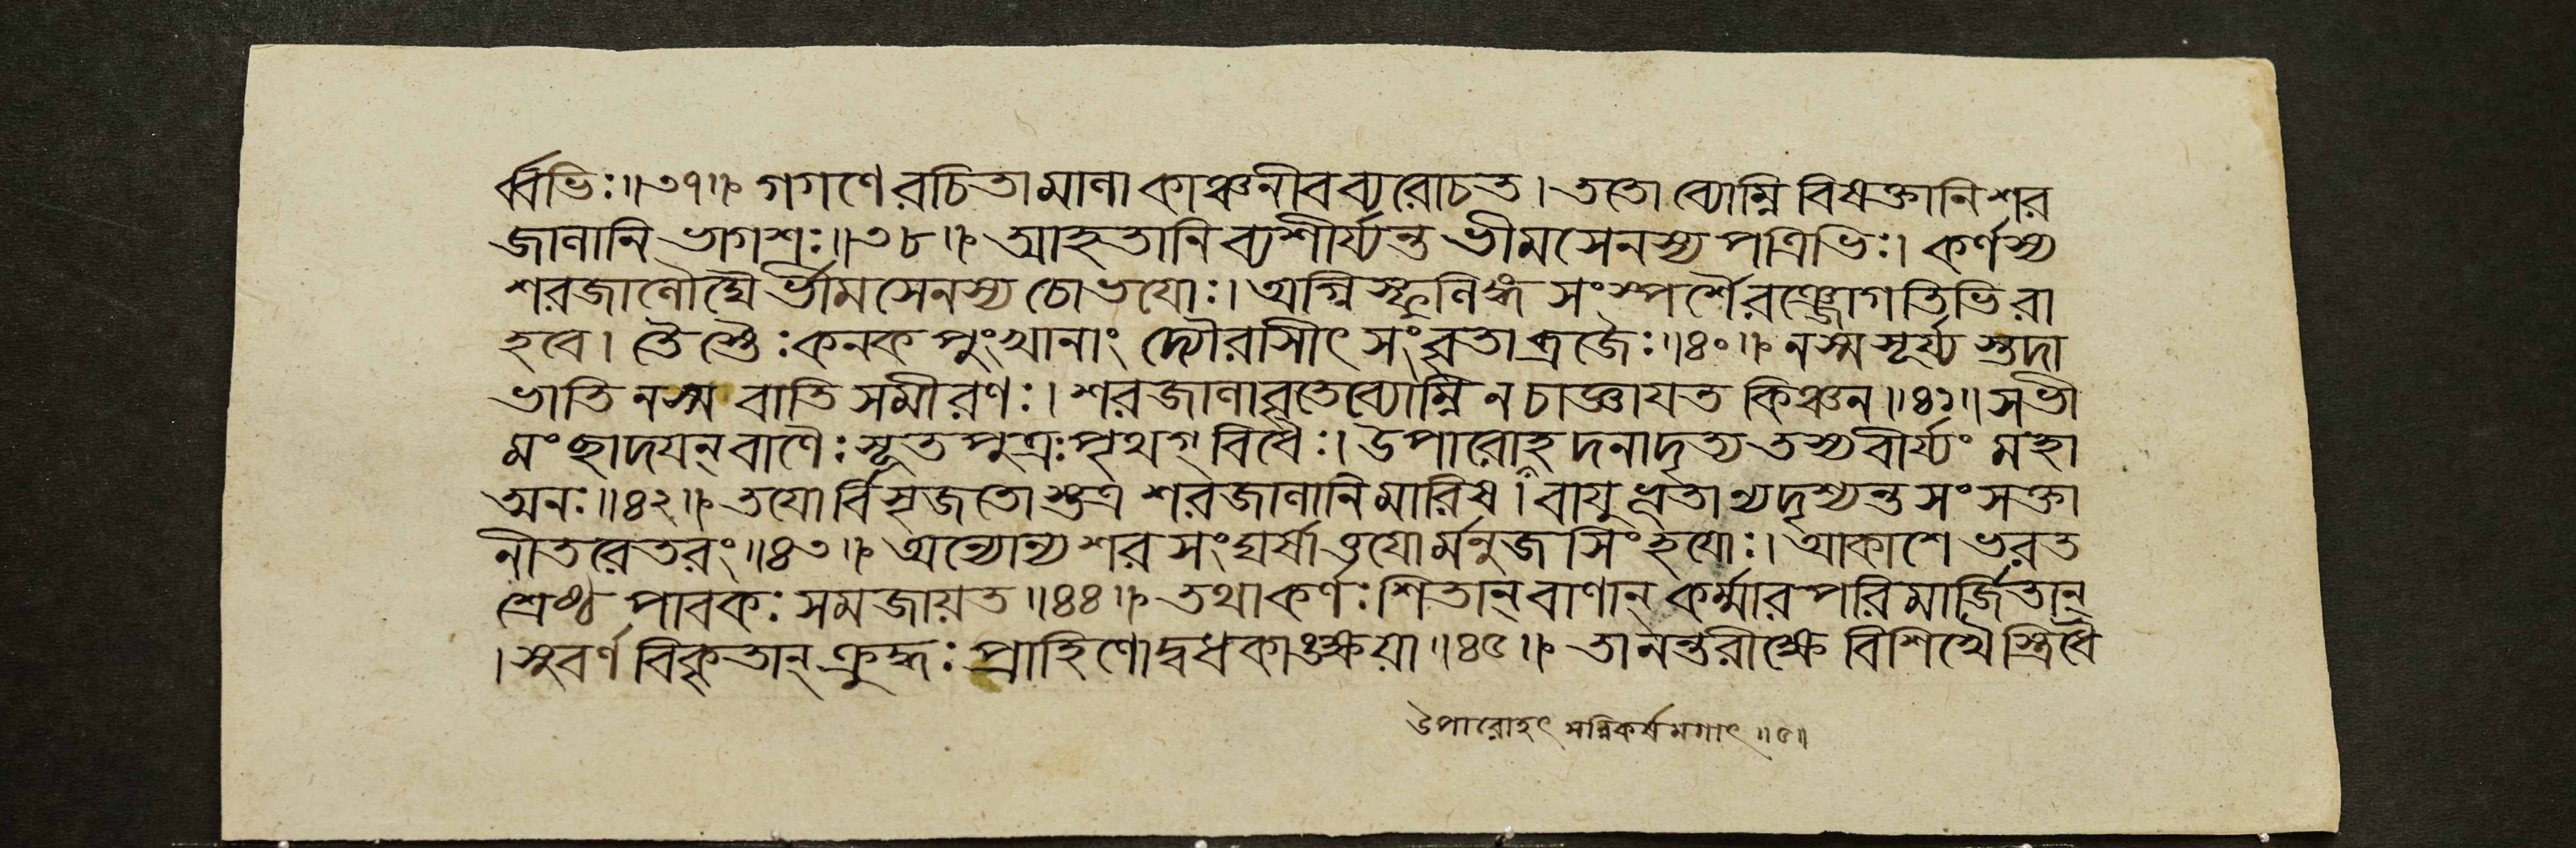 র্ব্বিভিঃ॥৩৭॥ গগণে রচিতা মালা কাঞ্চনীব ব্যরোচত। ততো ব্যোম্নি বিষক্তানি শর
জালানি ভাগশঃ॥৩৮॥ আহতানি ব্যশীর্য্যন্ত ভীমসেনস্য পত্রিভিঃ। কর্ণস্য
শরজালৌঘৈর্ভীমসেনস্য চোভযোঃ। অগ্নিস্ফুলিঙ্গ সংস্পর্শৈরঞ্জোগতিভিরা
হবে। তৈস্তৈঃ কনকপুংখানাং দ্যৌরাসীৎ সংবৃতা ব্রজৈঃ॥৪০॥ নস্ম সূর্য্য স্তদা
ভাতি নস্ম বাতি সমীরণঃ। শরজালাবৃতে ব্যোম্নি ন চাজ্ঞাযত কিঞ্চন॥৪১॥ সভী
মং ছাদযন্ বাণৈঃ সূতপুত্রঃ পৃথগ্ বিধৈঃ। উপারোহদনাদৃত্য তস্য বীর্য্যং মহা
ত্মনঃ॥৪২॥ তযোর্বিসৃজতোস্তত্র শরজালানি মারিষ। বাযুধূতান্যদৃশ্যন্ত সংসক্তা
নীতরেতরং॥৪৩॥ অন্যোন্যশর সংঘর্ষাত্তযোর্মনুজসিংহযোঃ। আকাশে ভরত
শ্রেষ্ঠ পাবকঃ সমজায়ত॥৪৪॥ তথা কর্ণঃ শিতান্ বাণান্ কর্ম্মার পরিমার্জিতান্
। সুবর্ণ বিকৃতান্ ক্রুদ্ধঃ প্রাহিণোদ্বধকাঙ্ক্ষয়া॥৪৫॥ তানন্তরীক্ষে বিশিখৈস্ত্রিধৈ
উপারোহৎ সন্নিকর্ষমগাৎ॥৫॥